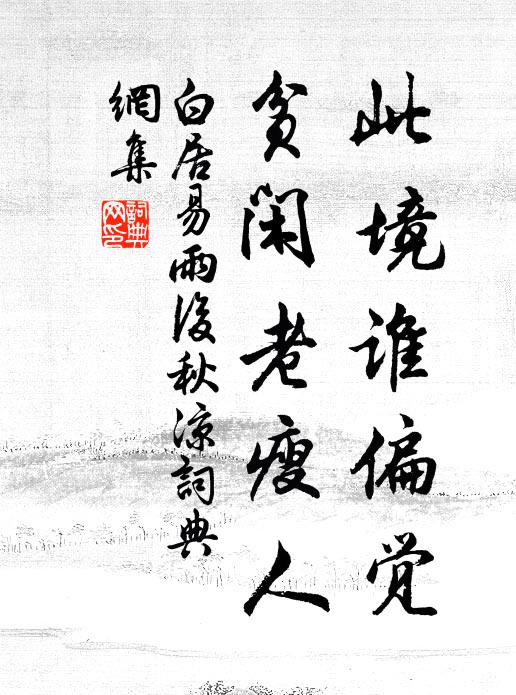 此境谁偏觉
貧閑老瘦人
白居易雨後秋凉詞典
網集
詞典
网印